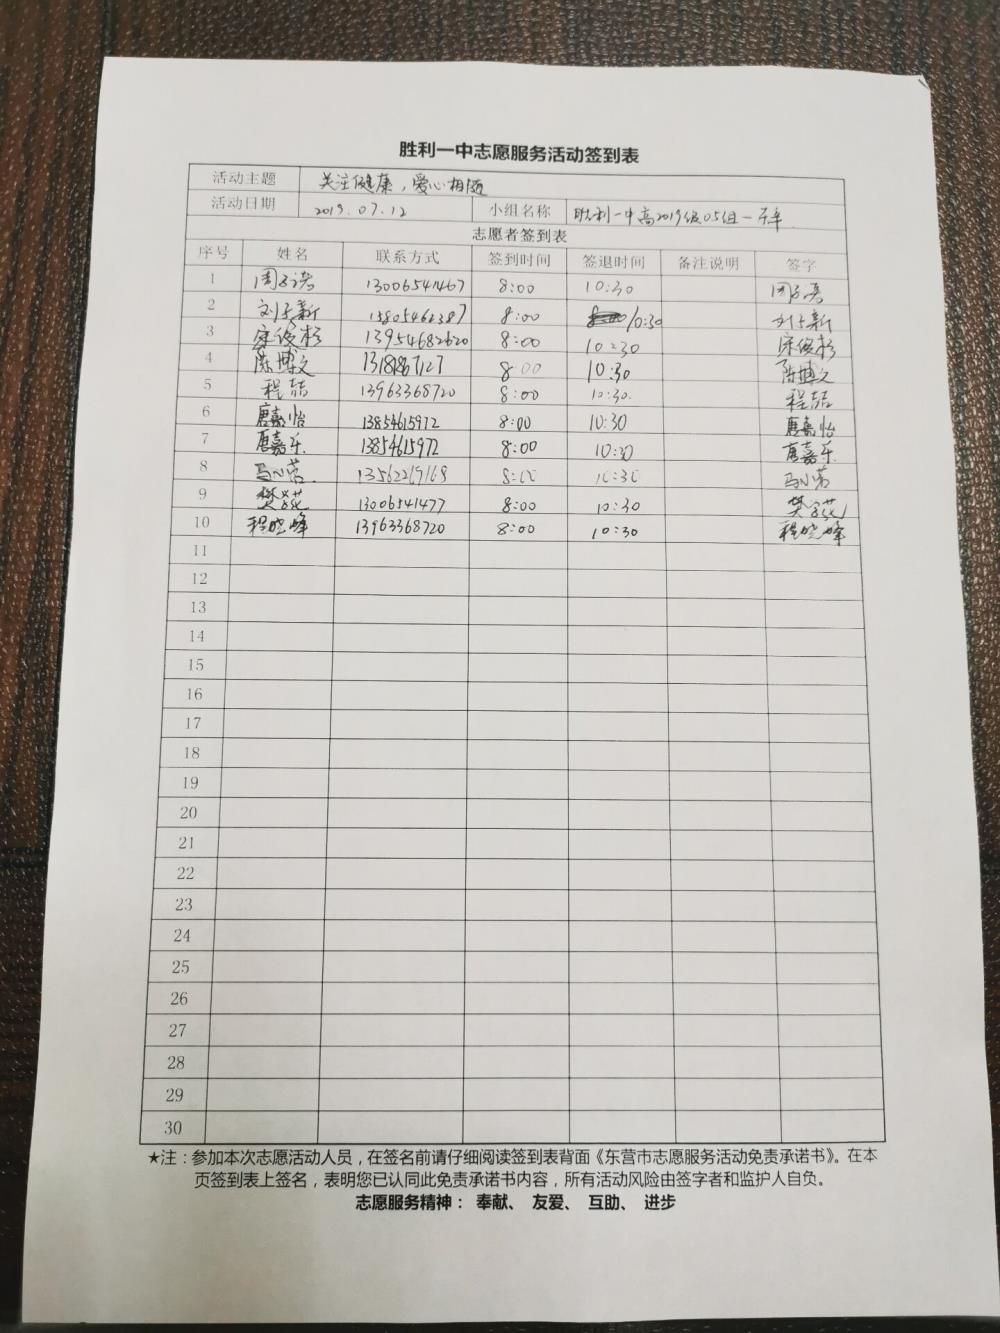 胜利一中志愿服务活动签到表
活动主题 关注健康，爱心相随
活动日期 2019.07.12 小组名称 胜利一中高2019级05组
志愿者签到表
序号 姓名 联系方式 签到时间 签退时间 备注说明 签字
1 13006541467 8:00 10:30
2 刘子新 8:00 10:30 刘子新
3 宋俊杉 13954682620 8:00 10:30 宋俊杉
4 陈博文 8:00 10:30 陈博文
5 程喆 13963368720 8:00 10:30. 程喆
6 唐嘉怡 13854615972 8:00 10:30 唐嘉怡
7 唐嘉乐 13854615972 8:00 10:30 唐嘉乐
8 8:00 10:30
9 13006541477 8:00 10:30
10 程晓峰 13963368720 8:00 10:30 程晓峰
11
12
13
14
15
16
17
18
19
20
21
22
23
24
25
26
27
28
29
30
★注：参加本次志愿活动人员，在签名前请仔细阅读签到表背面《东营市志愿服务活动免责承诺书》。在本
页签到表上签名，表明您已认同此免责承诺书内容，所有活动风险由签字者和监护人自负。
志愿服务精神： 奉献、 友爱、 互助、 进步